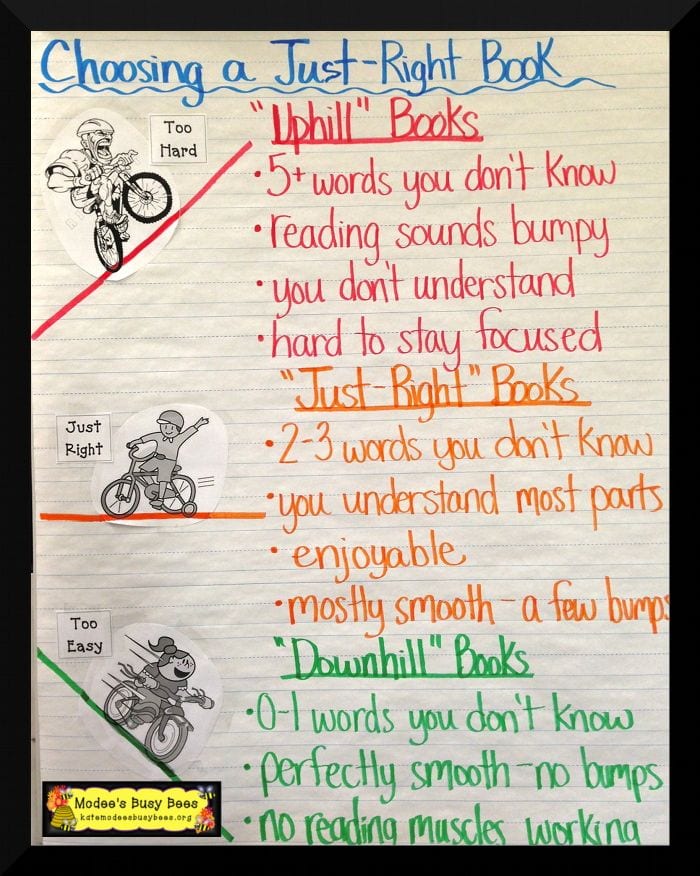 Choosing a Just-Right Book
Too
Hard
"Uphill" Books
•5+ words you don't know
•reading sounds bumpy
•you don't understand
•hard to stay focused
Just
Right
"Just-Right" Books
•2-3 words you don't know
•you understand most parts
•enjoyable
•mostly smooth - a few bumps
Too
Easy
"Downhill" Books
•0-1 words you don't know
•perfectly smooth - no bumps
•no reading muscles working
Modee's Busy Bees
katemodeesbusybees.org